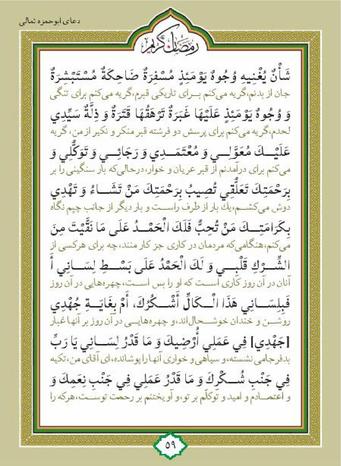 دعای ابوحمزه ثمالی
رمضان کریم
شَأْنٌ يُغْنِيهِ وُجُوهٌ يَوْمَئِذٍ مُسْفِرَةٌ ضَاحِكَةٌ مُسْتَبْشِرَةٌ
جان از بدنم، گریه می‌کنم برای تاریکی قبرم، گریه می‌کنم برای تنگی
وَ وُجُوهٌ يَوْمَئِذٍ عَلَيْهَا غَبَرَةٌ تَرْهَقُهَا قَتَرَةٌ وَ ذِلَّةٌ سَيِّدِي
لحدم، گریه می‌کنم برای پرسش دو فرشته قبر منکر و نکیر از من، گریه
عَلَيْكَ مُعَوَّلِي وَ مُعْتَمَدِي وَ رَجَائِي وَ تَوَكُّلِي وَ
می‌کنم برای درآمدنم از قبر عریان و خوار، درحالی‌که بار سنگینی را بر
بِرَحْمَتِكَ تَعَلُّقِي تُصِيبُ بِرَحْمَتِكَ مَنْ تَشَاءُ وَ تَهْدِي
دوش می‌کشم، یک بار از طرف راست و بار دیگر از جانب چپم نگاه
بِكَرَامَتِكَ مَنْ تُحِبُّ فَلَكَ الْحَمْدُ عَلَى مَا نَقَّيْتَ مِنَ
می‌کنم، هنگامی‌که مردمان در کاری جز کار منند، چه برای هرکسی از
الشِّرْكِ قَلْبِي وَ لَكَ الْحَمْدُ عَلَى بَسْطِ لِسَانِي أَ
آنان در آن روز کاری است که او را بس است، چهره‌هایی در آن روز
فَبِلِسَانِي هَذَا الْكَالِّ أَشْكُرُكَ، أَمْ بِغَايَةِ جُهْدِي
روشن و خندان خوشحال‌اند، و چهره‌هایی در آن روز بر آنها غبار
[جَهْدِي] فِي عَمَلِي أُرْضِيكَ وَ مَا قَدْرُ لِسَانِي يَا رَبِّ
بدفرجامی نشسته، و سیاهی و خواری آنها را پوشانده، ای آقای من، تکیه
فِي جَنْبِ شُكْرِكَ وَ مَا قَدْرُ عَمَلِي فِي جَنْبِ نِعَمِكَ وَ
و اعتمادم و امید و توکلم بر تو، و آویختنم بر رحمت توست، هرکه را
٥٩